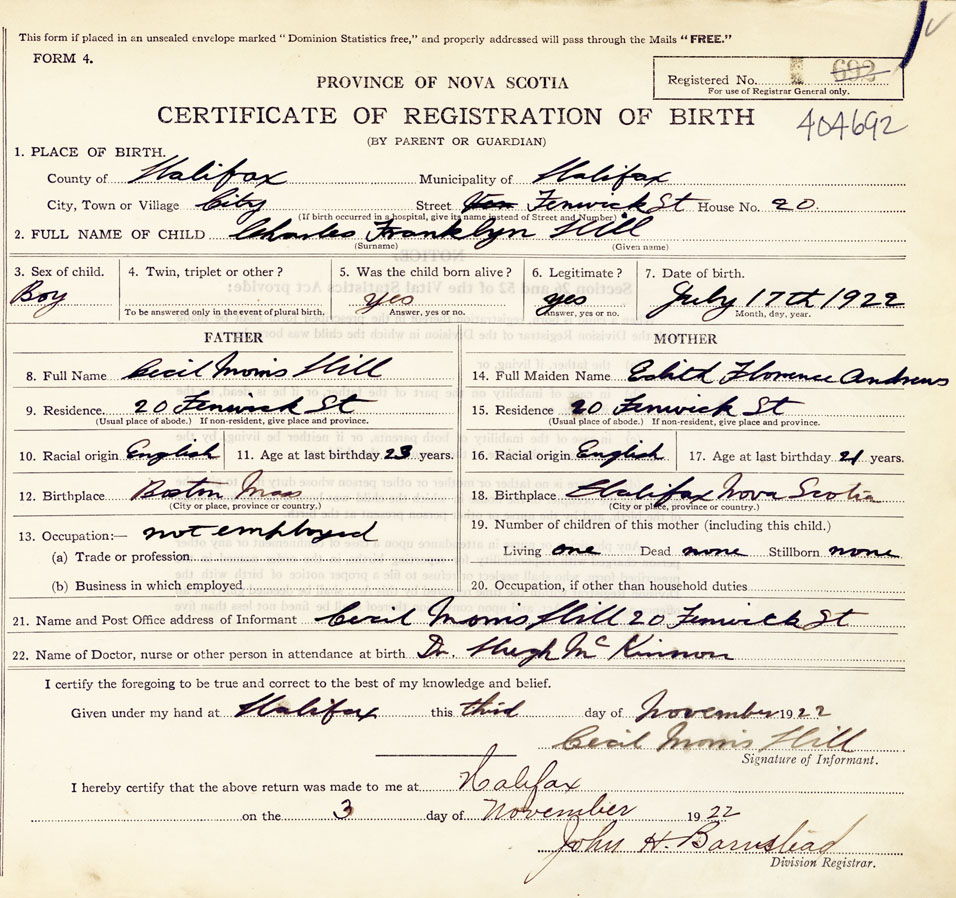 This form if placed in an unsealed envelope marked "Dominion Statistics free," and properly addressed will pass through the Mails "FREE."
FORM 4.
Registered No. 692
For use of Registrar General only.
PROVINCE OF NOVA SCOTIA
CERTIFICATE OF REGISTRATION OF BIRTH
404692
(BY PARENT OR GUARDIAN)
1. PLACE OF BIRTH.
County of Halifax Municipality of Halifax
City, Town or Village City Street Fenwick St House No. 20.
(If birth occurred in a hospital, give its name instead of Street and Number)
2. FULL NAME OF CHILD Charles Franklyn Hill
(Surname) (Given name)
3. Sex of child. 4. Twin, triplet or other? 5. Was the child born alive? 6. Legitimate? 7. Date of birth.
Boy yes yes July 17th 1922
To be answered only in the event of plural birth. Answer, yes or no. Answer, yes or no. Month, day, year.
FATHER MOTHER
8. Full Name Cecil Morris Hill 14. Full Maiden Name Edith Florence Andrews
9. Residence. 20 Fenwick St 15. Residence 20 Fenwick St
(Usual place of abode.) If non-resident, give place and province. (Usual place of abode.) If non-resident, give place and province.
10. Racial origin English 11. Age at last birthday 23 years. 16. Racial origin English 17. Age at last birthday 21 years.
12. Birthplace Boston Mass 18. Birthplace Halifax Nova Scotia
(City or place, province or country.) (City or place, province or country.)
13. Occupation:— not employed 19. Number of children of this mother (including this child.)
(a) Trade or profession Living one Dead none Stillborn none
(b) Business in which employed 20. Occupation, if other than household duties
21. Name and Post Office address of Informant Cecil Morris Hill 20 Fenwick St
22. Name of Doctor, nurse or other person in attendance at birth Dr. Hugh McKinnon
I certify the foregoing to be true and correct to the best of my knowledge and belief.
Given under my hand at Halifax this third day of November 1922
Cecil Morris Hill
Signature of Informant.
I hereby certify that the above return was made to me at Halifax
on the 3 day of November 1922
John H. Barnstead
Division Registrar.